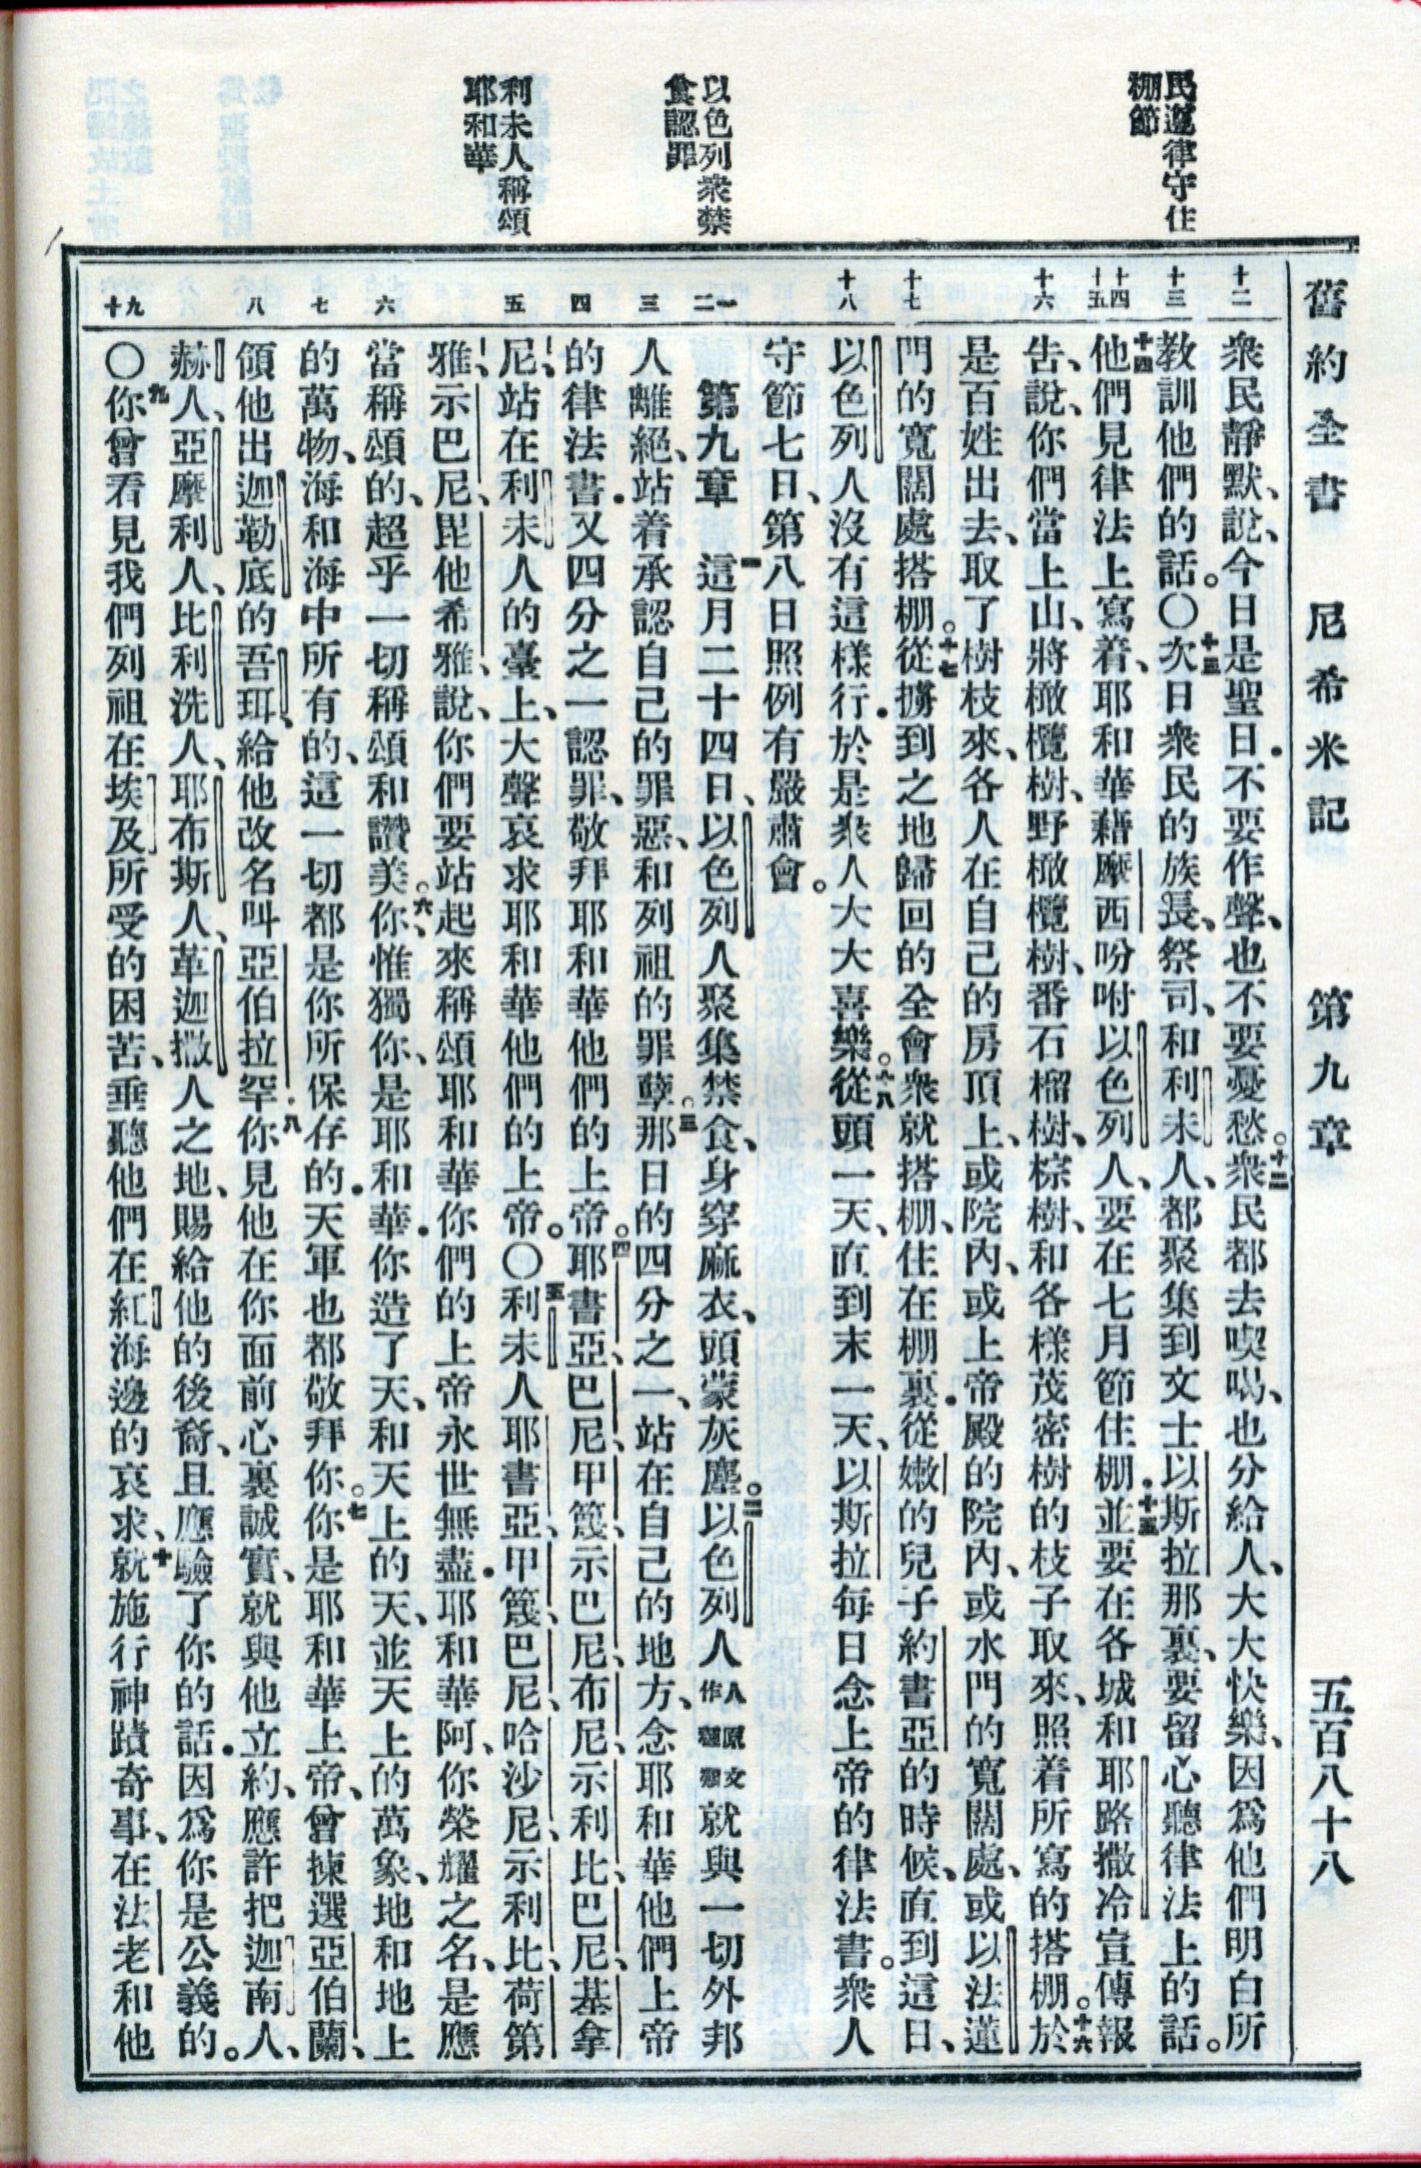 舊約全書　尼希米記　第九章　五百八十八
民遵律守住
棚節
以色列衆禁
食認罪
利未人稱頌
耶和華
十二
十三
十四
十五
十六
十七
十八
一
二
三
四
五
六
七
八
九
十
衆民靜默、說、今日是聖日．不要作聲、也不要憂愁。十二衆民都去喫喝、也分給人、大大快樂、因爲他們明白所
教訓他們的話。〇十三次日衆民的族長、祭司、和利未人、都聚集到文士以斯拉那裏、要留心聽律法上的話。
十四他們見律法上寫着、耶和華藉摩西吩咐以色列人、要在七月節住棚．十五並要在各城和耶路撒冷宣傳報
告、說、你們當上山、將橄欖樹、野橄欖樹、番石榴樹、棕樹、和各樣茂密樹的枝子取來、照着所寫的搭棚。十六於
是百姓出去、取了樹枝來、各人在自己的房頂上、或院內、或上帝殿的院內、或水門的寬闊處、或以法蓮
門的寬闊處搭棚。十七從擄到之地歸回的全會衆就搭棚、住在棚裏．從嫩的兒子約書亞的時候、直到這日、
以色列人沒有這樣行．於是衆人大大喜樂。十八從頭一天、直到末一天、以斯拉每日念上帝的律法書。衆人
守節七日、第八日照例有嚴肅會。
第九章　一這月二十四日、以色列人聚集禁食、身穿麻衣、頭蒙灰塵。二以色列人人原文作種類就與一切外邦
人離絕、站着承認自己的罪惡、和列祖的罪孽。三那日的四分之一、站在自己的地方、念耶和華他們上帝
的律法書．又四分之一認罪、敬拜耶和華他們的上帝。四耶書亞、巴尼、甲篾、示巴尼、布尼、示利比、巴尼、基拿
尼、站在利未人的臺上、大聲哀求耶和華他們的上帝。〇五利未人耶書亞、甲篾、巴尼、哈沙尼、示利比、荷第
雅、示巴尼、毘他希雅、說、你們要站起來稱頌耶和華你們的上帝永世無盡．耶和華阿、你榮耀之名、是應
當稱頌的、超乎一切稱頌和讚美。六你、惟獨你、是耶和華．你造了天、和天上的天、並天上的萬象、地和地上
的萬物、海和海中所有的、這一切都是你所保存的．天軍也都敬拜你。七你是耶和華上帝、曾揀選亞伯蘭、
領他出迦勒底的吾珥、給他改名叫亞伯拉罕．八你見他在你面前心裏誠實、就與他立約、應許把迦南人、
赫人、亞摩利人、比利洗人、耶布斯人、革迦撒人之地、賜給他的後裔、且應驗了你的話．因爲你是公義的。
〇九你曾看見我們列祖在埃及所受的困苦、垂聽他們在紅海邊的哀求、十就施行神蹟奇事、在法老和他